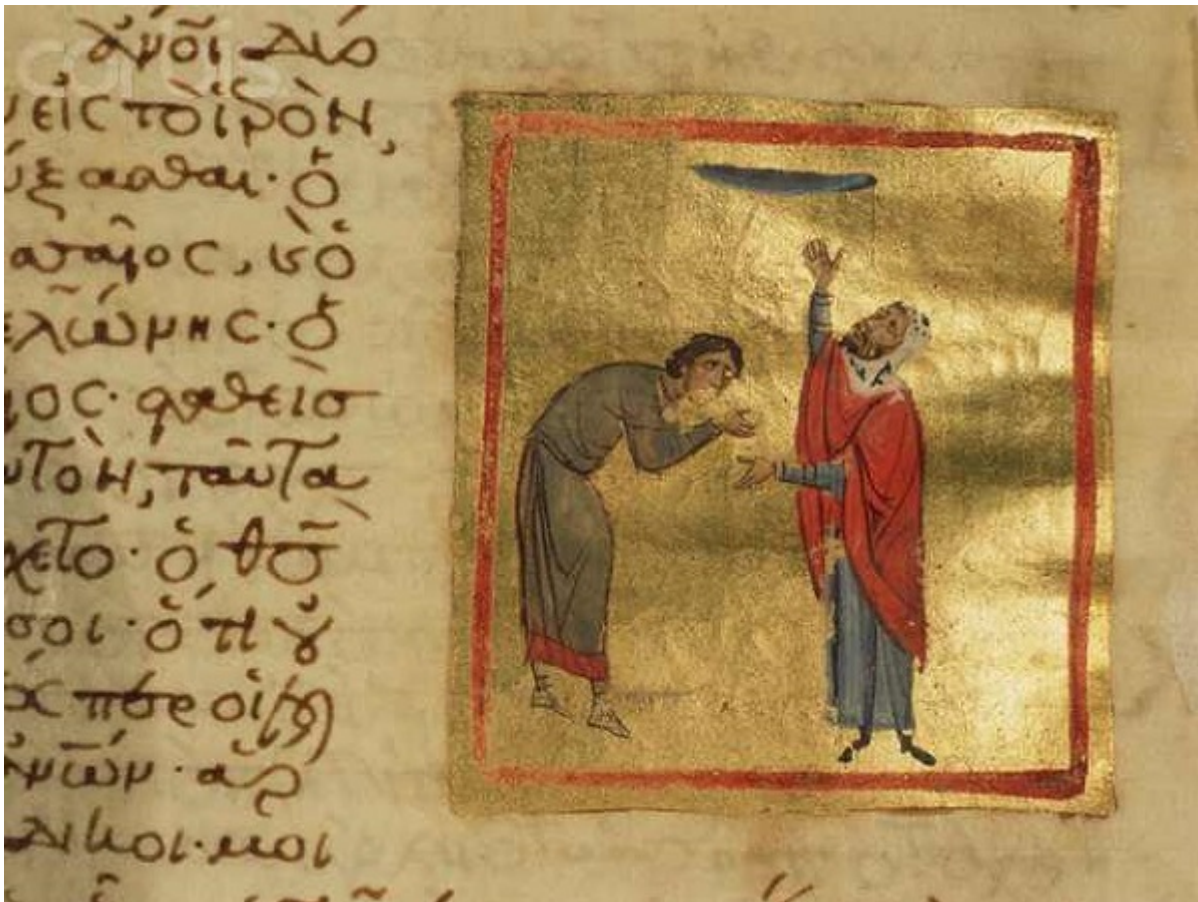 ἄνοι δύο
ν εἰς τὸ ἱερὸν,
ύξασθαι· ὁ
σαῖος, κ ὁ
ελώνης· ὁ
ῖος· σταθεὶσ
υτὸν, ταῦτα
χετο· ὁ θσ
σοι· ὅτι οὐ
περ οἱ
ἀνων· ἁρ
δικοι· μοι